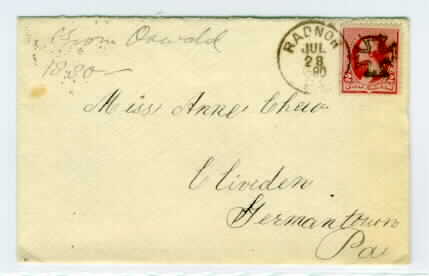 From Oswald
1890
RADNOR
JUL
28
90
Miss Anne Chew
Cliveden
Germantown
Pa